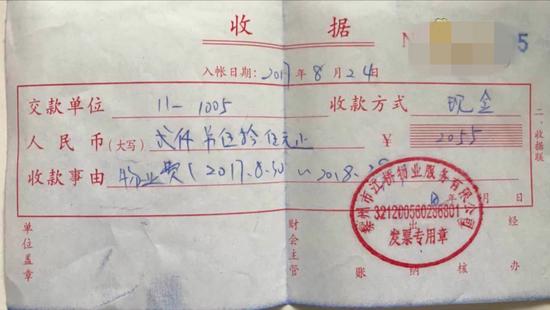 收 据
N 5
入帐日期: 2017 年 8 月 24 日
交款单位 11-1005 收款方式 现金
人民币(大写) 贰仟 伍拾伍元 ¥ 2055
收款事由 物业费(2017.8.30 ~ 2018.8.
年 月 日
二、收据联
单位盖章
财会主管
账
出纳
核
经办
泰州市 物业服务有限公司
321200560298801
发票专用章